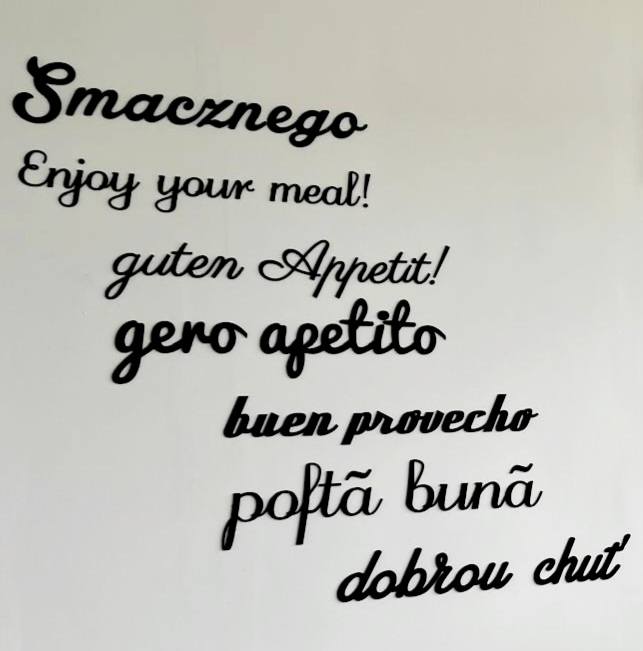 Smacznego
Enjoy your meal!
guten Appetit!
gero apetito
buen provecho
poftã bunã
dobrou chuť